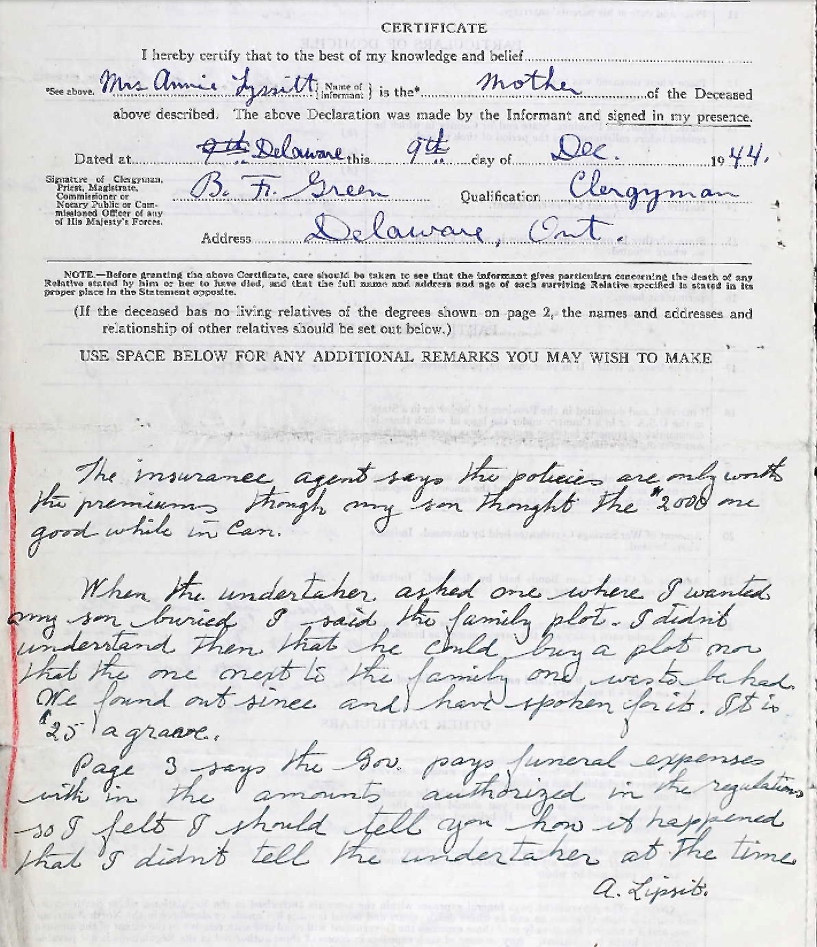 CERTIFICATE
I hereby certify that to the best of my knowledge and belief
*See above. Mrs Annie Lipsitt {Name of Informant} is the* Mother of the Deceased
above described. The above Declaration was made by the Informant and signed in my presence.
Dated at 9th Delaware this 9th day of Dec. 1944.
Signature of Clergyman,
Priest, Magistrate,
Commissioner or
Notary Public or Com-
missioned Officer of any
of His Majesty's Forces.
B. F. Green Qualification Clergyman
Address Delaware, Ont.
NOTE.—Before granting the above Certificate, care should be taken to see that the informant gives particulars concerning the death of any
Relative stated by him or her to have died, and that the full name and address and age of each surviving Relative specified is stated in its
proper place in the Statement opposite.
(If the deceased has no living relatives of the degrees shown on page 2, the names and addresses and
relationship of other relatives should be set out below.)
USE SPACE BELOW FOR ANY ADDITIONAL REMARKS YOU MAY WISH TO MAKE
The insurance agent says the policies are only worth
the premiums though my son thought the $2000 one
good while in Can.
When the undertaker asked me where I wanted
my son buried I said the family plot. I didn't
understand then that he could buy a plot nor
that the one next to the family one was to be had.
We found out since and have spoken for it. It is
$25 a grave.
Page 3 says the Gov. pays funeral expenses
with in the amounts authorized in the regulations
so I felt I should tell you how it happened
that I didn't tell the undertaker at the time
A. Lipsit.